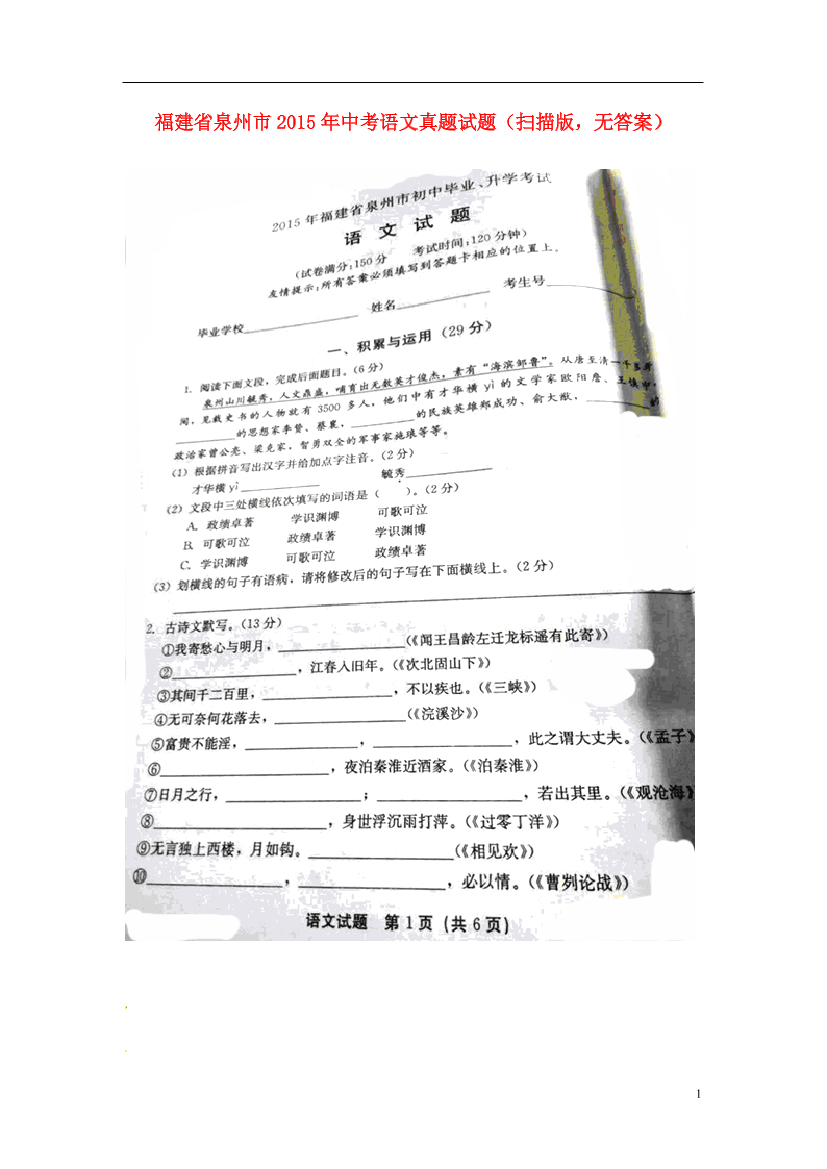 福建省泉州市2015年中考语文真题试题（扫描版，无答案）
2015年福建省泉州市初中毕业、升学考试
语文试题
（试卷满分：150分 考试时间：120分钟）
友情提示：所有答案必须填写到答题卡相应的位置上。
毕业学校 姓名 考生号
一、积累与运用（29分）
1. 阅读下面文段，完成后面题目。（6分）
泉州山川毓秀，人文鼎盛，哺育出无数英才俊杰，素有“海滨邹鲁”。从唐至清一千
闻，见载史书的人物就有3500多人，他们中有才华横yì的文学家欧阳詹、王慎中，
的思想家李贽、蔡襄， 的民族英雄郑成功、俞大猷， 的
政治家曾公亮、梁克家，智勇双全的军事家施琅等等。
（1）根据拼音写出汉字并给加点字注音。（2分）
才华横yì 毓秀
（2）文段中三处横线依次填写的词语是（ ）。（2分）
A. 政绩卓著 学识渊博 可歌可泣
B. 可歌可泣 政绩卓著 学识渊博
C. 学识渊博 可歌可泣 政绩卓著
（3）划横线的句子有语病，请将修改后的句子写在下面横线上。（2分）
2. 古诗文默写。（13分）
①我寄愁心与明月， （《闻王昌龄左迁龙标遥有此寄》）
② ，江春入旧年。（《次北固山下》）
③其间千二百里， ，不以疾也。（《三峡》）
④无可奈何花落去， （《浣溪沙》）
⑤富贵不能淫， ， ，此之谓大丈夫。（《孟子》
⑥ ，夜泊秦淮近酒家。（《泊秦淮》）
⑦日月之行， ； ，若出其里。（《观沧海》
⑧ ，身世浮沉雨打萍。（《过零丁洋》）
⑨无言独上西楼，月如钩。 （《相见欢》）
⑩ ， ，必以情。（《曹刿论战》）
语文试题 第1页（共6页）
1